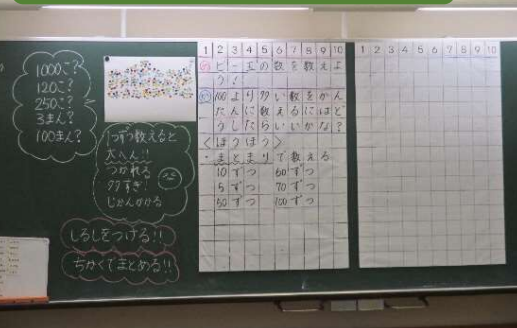 1000こ?
120こ?
250こ?
3まん?
100まん?
1つずつ数えると
大へん!!
つかれる
多すぎ!
じかんかかる
しるしをつける!!
ちかくでまとめる!!
1 2 3 4 5 6 7 8 9 10
ビー玉の数を数えよ
う!!
100より多い数をかん
たんに数えるにはど
うしたらいいかな?
〈ほうほう〉
・まとまりで数える
10ずつ 60ずつ
5ずつ 70ずつ
50ずつ 100ずつ
1 2 3 4 5 6 7 8 9 10